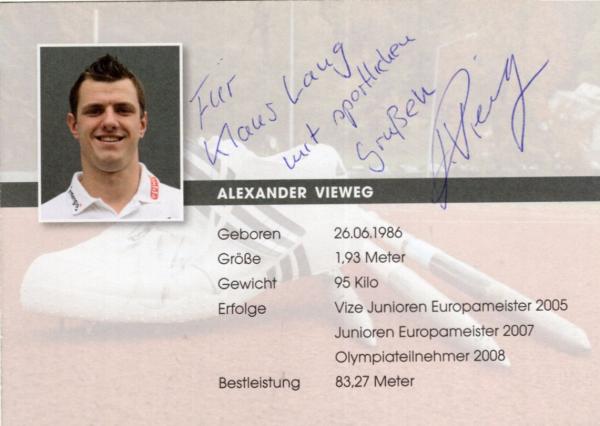 Für
Klaus Lang
mit sportlichen
Grüßen
ALEXANDER VIEWEG
Geboren 26.06.1986
Größe 1,93 Meter
Gewicht 95 Kilo
Erfolge Vize Junioren Europameister 2005
Junioren Europameister 2007
Olympiateilnehmer 2008
Bestleistung 83,27 Meter